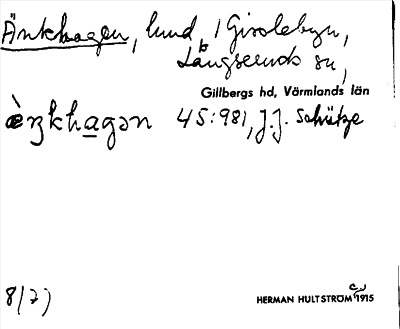 Änkhagen, lund, i Gisslebyn,
Långseruds sn,
Gillbergs hd, Värmlands län
æ̀ŋkhagən 45:981, J.J. Schütze
8/7)
HERMAN HULTSTRÖM 1915